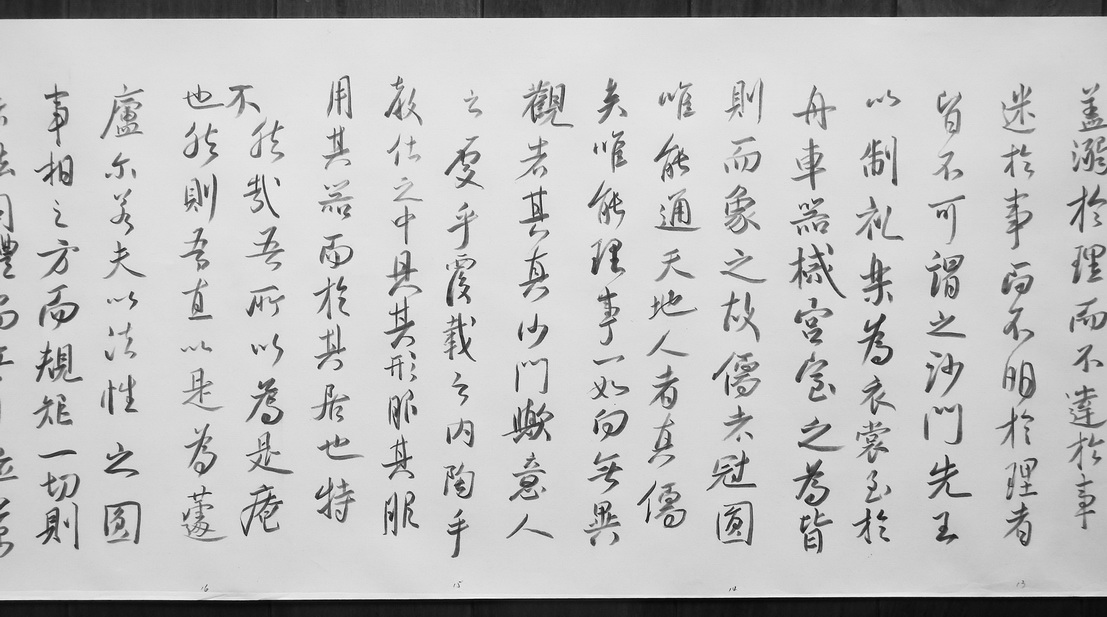 蓋溺於理而不達於事
迷於事而不明於理者
皆不可謂之沙門先王
以制礼樂為衣裳至於
舟車器械宮室之為皆
則而象之故儒者冠圓
唯能通天地人者真儒
矣唯能理事一如向無異
觀者其真沙門歟意人
之處乎覆載之內陶乎
教化之中具其形服其服
用其器而於其居也特
不然哉吾所以為是庵
也然則吾直以是為蘧
廬尔若夫以法性之圓
事相之方而規矩一切則